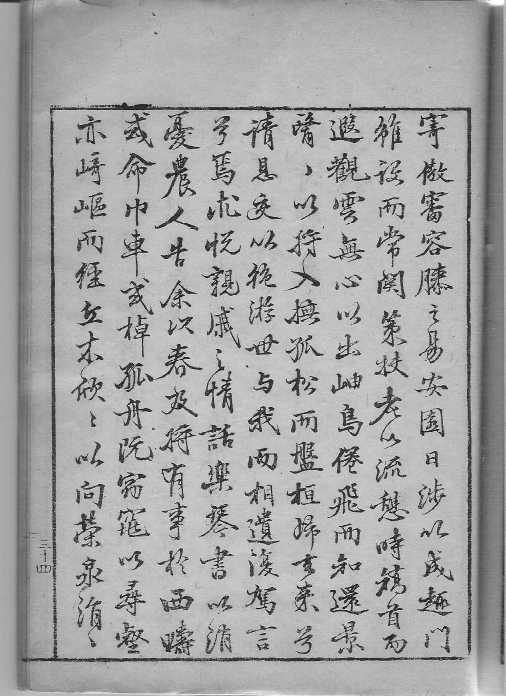 寄傲審容膝之易安園日涉以成趣門
雖設而常関策扶老以流憩時矯首而
遐觀雲無心以出岫鳥倦飛而知還景
翳〻以將入撫孤松而盤桓歸去来兮
請息交以絶游世与我而相遺復駕言
兮焉求悅親戚之情話樂琴書以消
憂農人告余以春及將有事於西疇
或命巾車或棹孤舟既窈窕以尋壑
亦崎嶇而經丘木欣〻以向榮泉涓〻
三十四